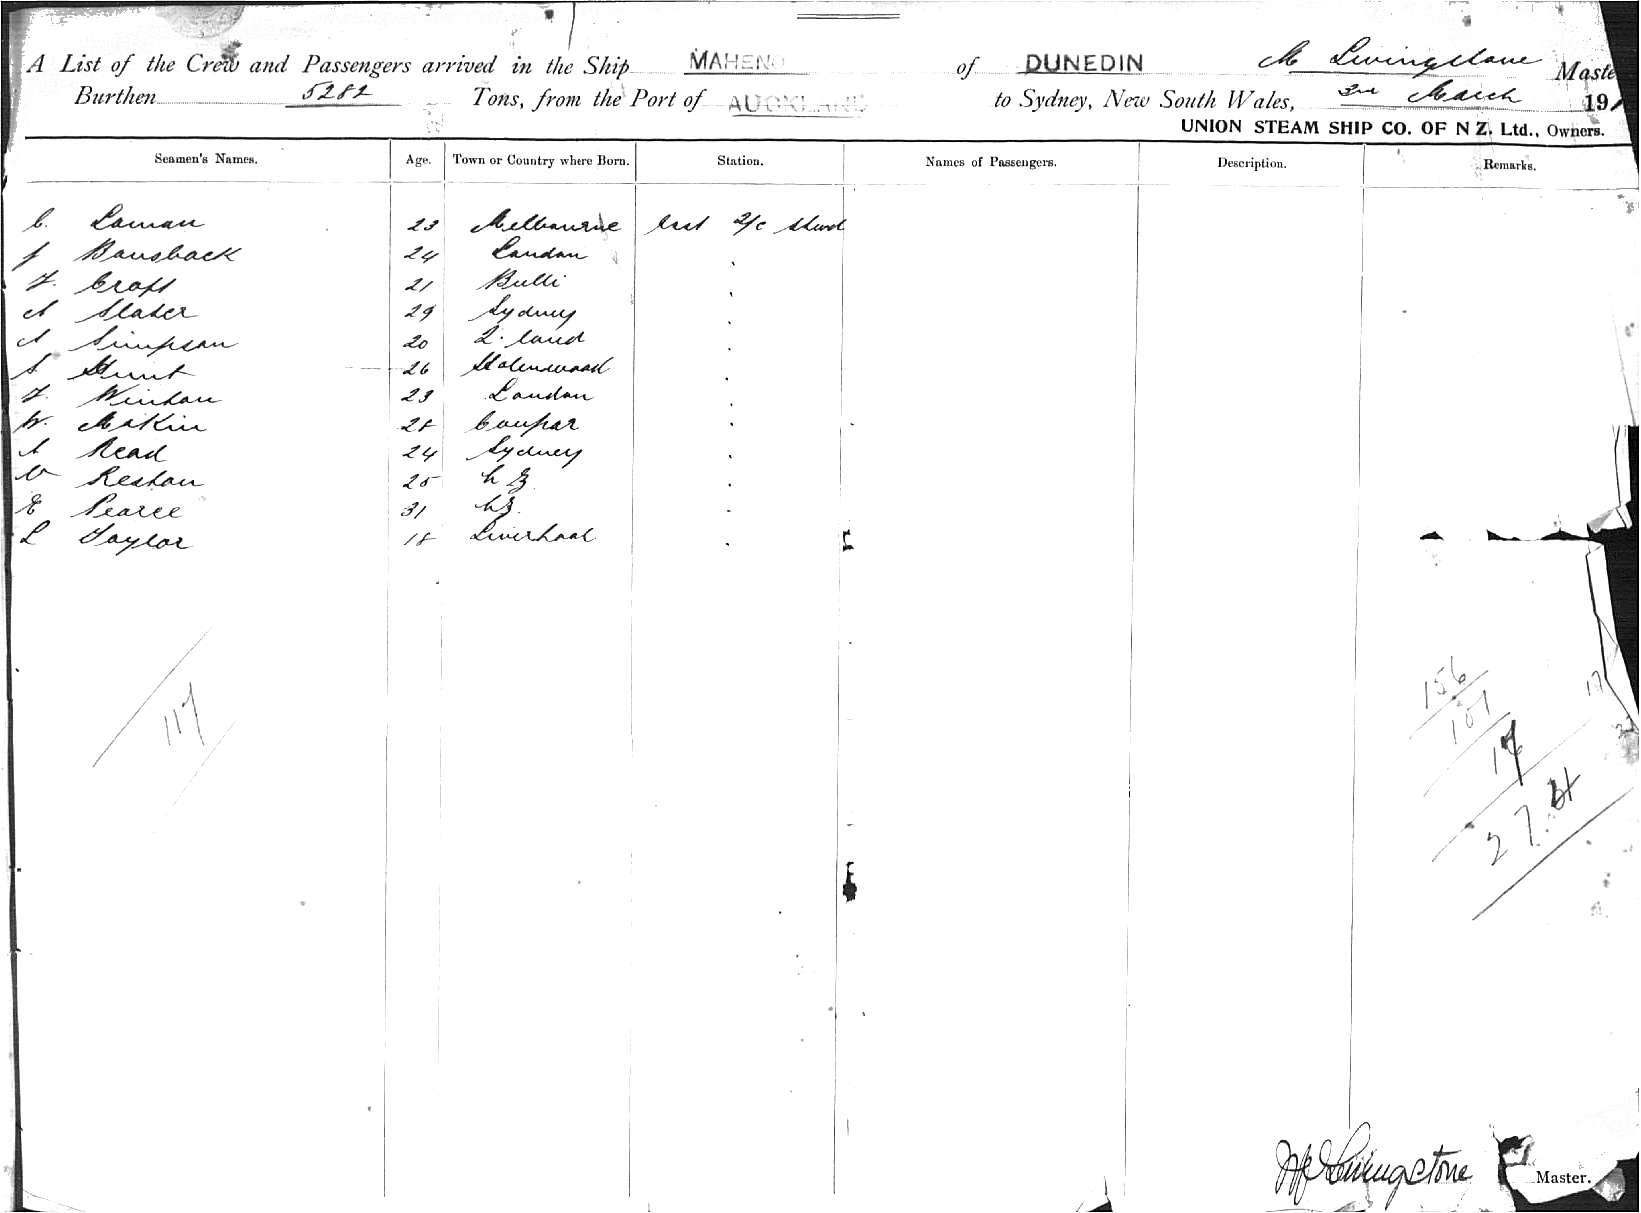 A List of the Crew and Passengers arrived in the Ship MAHENO of DUNEDIN M Livingstone Maste
Burthen 5282 Tons, from the Port of AUCKLAND to Sydney, New South Wales, 3rd March 191
UNION STEAM SHIP CO. OF N Z. Ltd., Owners.
Seamen's Names. Age. Town or Country where Born. Station. Names of Passengers. Description. Remarks.
C. Laman 23 Melbourne Asst 2/c Stwd
J Bansback 24 London
F. Croft 21 Bulli
A Slater 29 Sydney
A Simpson 20 Q. land
S. Hunt 26
F. Winton 23 London
W. Makin 28 Coupar
A Read 24 Sydney
V Reston 25 N Z
E Pearce 31 NZ.
L Taylor 18 Liverpool
117
156
107
17
274
Livingstone Master.